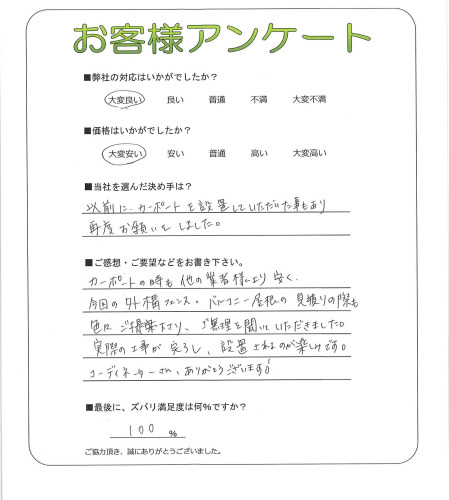 お客様アンケート
■弊社の対応はいかがでしたか?
大変良い 良い 普通 不満 大変不満
■価格はいかがでしたか?
大変安い 安い 普通 高い 大変高い
■当社を選んだ決め手は?
以前に、カーポートを設置していただいた事もあり
再度お願いをしました。
■ご感想・ご要望などをお書き下さい。
カーポートの時も他の業者様より安く、
今回の外構フェンス・バルコニー屋根の見積りの際も
色々ご提案下さり、ご無理を聞いていただきました。
実際の工事が完了し、設置されるのが楽しみです。
コーディネーターさん、ありがとうございます!
■最後に、ズバリ満足度は何%ですか?
100 %
ご協力頂き、誠にありがとうございました。